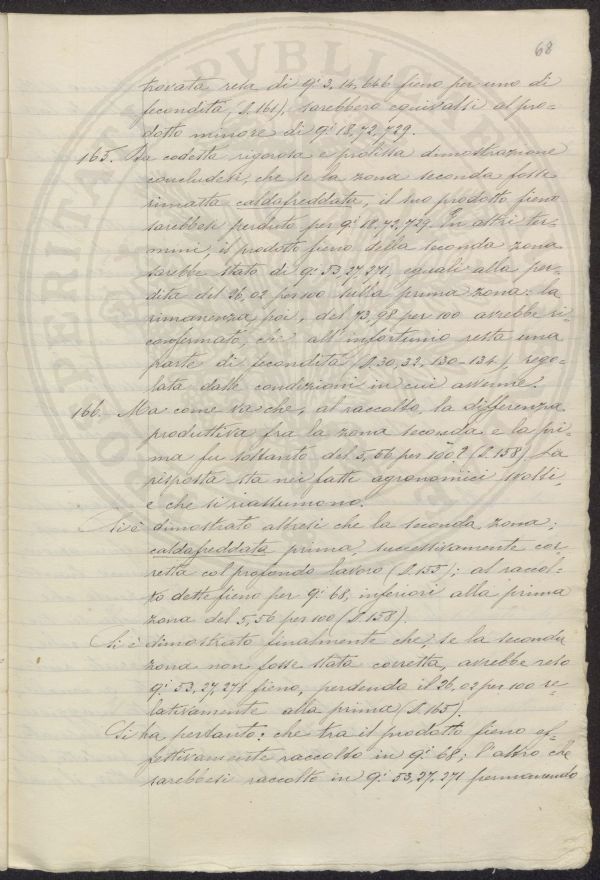 68
trovata resa di q.i 3,14,646 fieno per uno di
fecondità, S. 161), sarebbero equivalsi al pro-
dotto minore di q.i 18,72,729.
165. Da codesta rigorosa e prolissa dimostrazione
concludesi, che se la zona seconda fosse
rimasta caldafreddata, il suo prodotto fieno
sarebbesi perduto per q.i 18,72,729. In altri ter-
mini, il prodotto fieno della seconda zona
sarebbe stato di q.i 53,27,271, eguali alla per-
dita del 26,02 per 100 sulla prima zona: la
rimanenza poi, del 73,98 per 100 avrebbe ri-
confermato, che all'infortunio resta una
parte di fecondità (S. 30, 32, 130-134), rego-
lata dalle condizioni in cui avvenne.
166. Ma come va che, al raccolto, la differenza
produttiva fra la zona seconda e la pri-
ma fu soltanto del 5,56 per 100? (S. 158). La
risposta sta nei fatti agronomici svolti,
e che si riassumono.
Si è dimostrato altresì che la seconda zona;
caldafreddata prima, successivamente cor-
retta col profondo lavoro (S. 155); al raccol-
to dette fieno per q.i 68, inferiori alla prima
zona del 5,56 per 100 (S. 158).
Si è dimostrato finalmente che, se la seconda
zona non fosse stata corretta, avrebbe reso
q.i 53,27,271 fieno, perdendo il 26,02 per 100 re-
lativamente alla prima (S. 165).
Si ha pertanto: che tra il prodotto fieno ef-
fettivamente raccolto in q.i 68; l'altro che
sarebbesi raccolto in q.i 53,27,271 permanendo